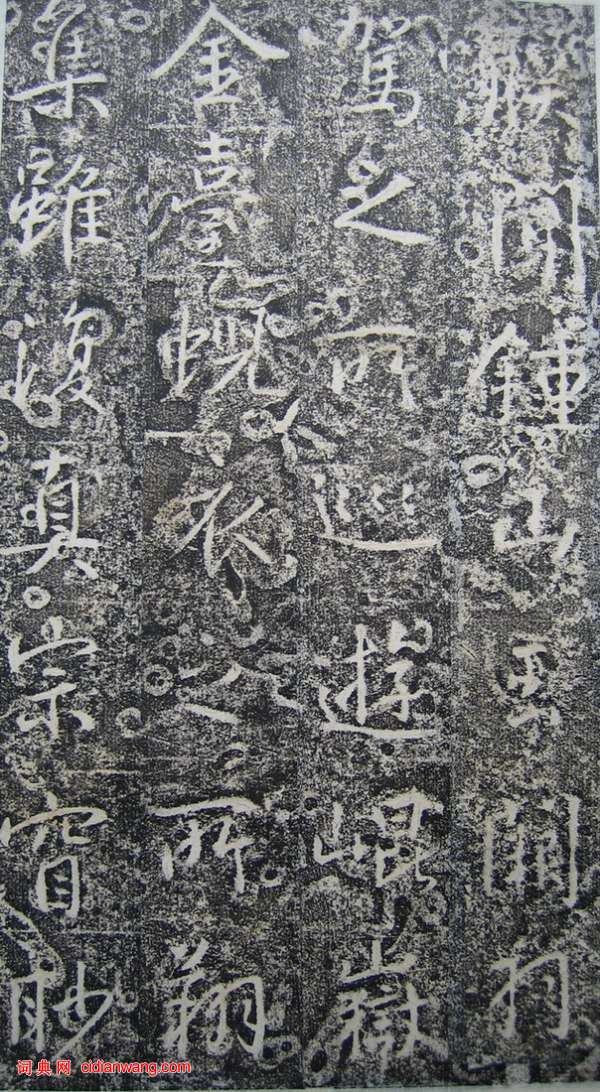 聞鍾山闕羽
駕之所巡遊崐嶽
金臺蜺衣之所翔
集雖復真宗窅眇
词典网 cidianwang.com